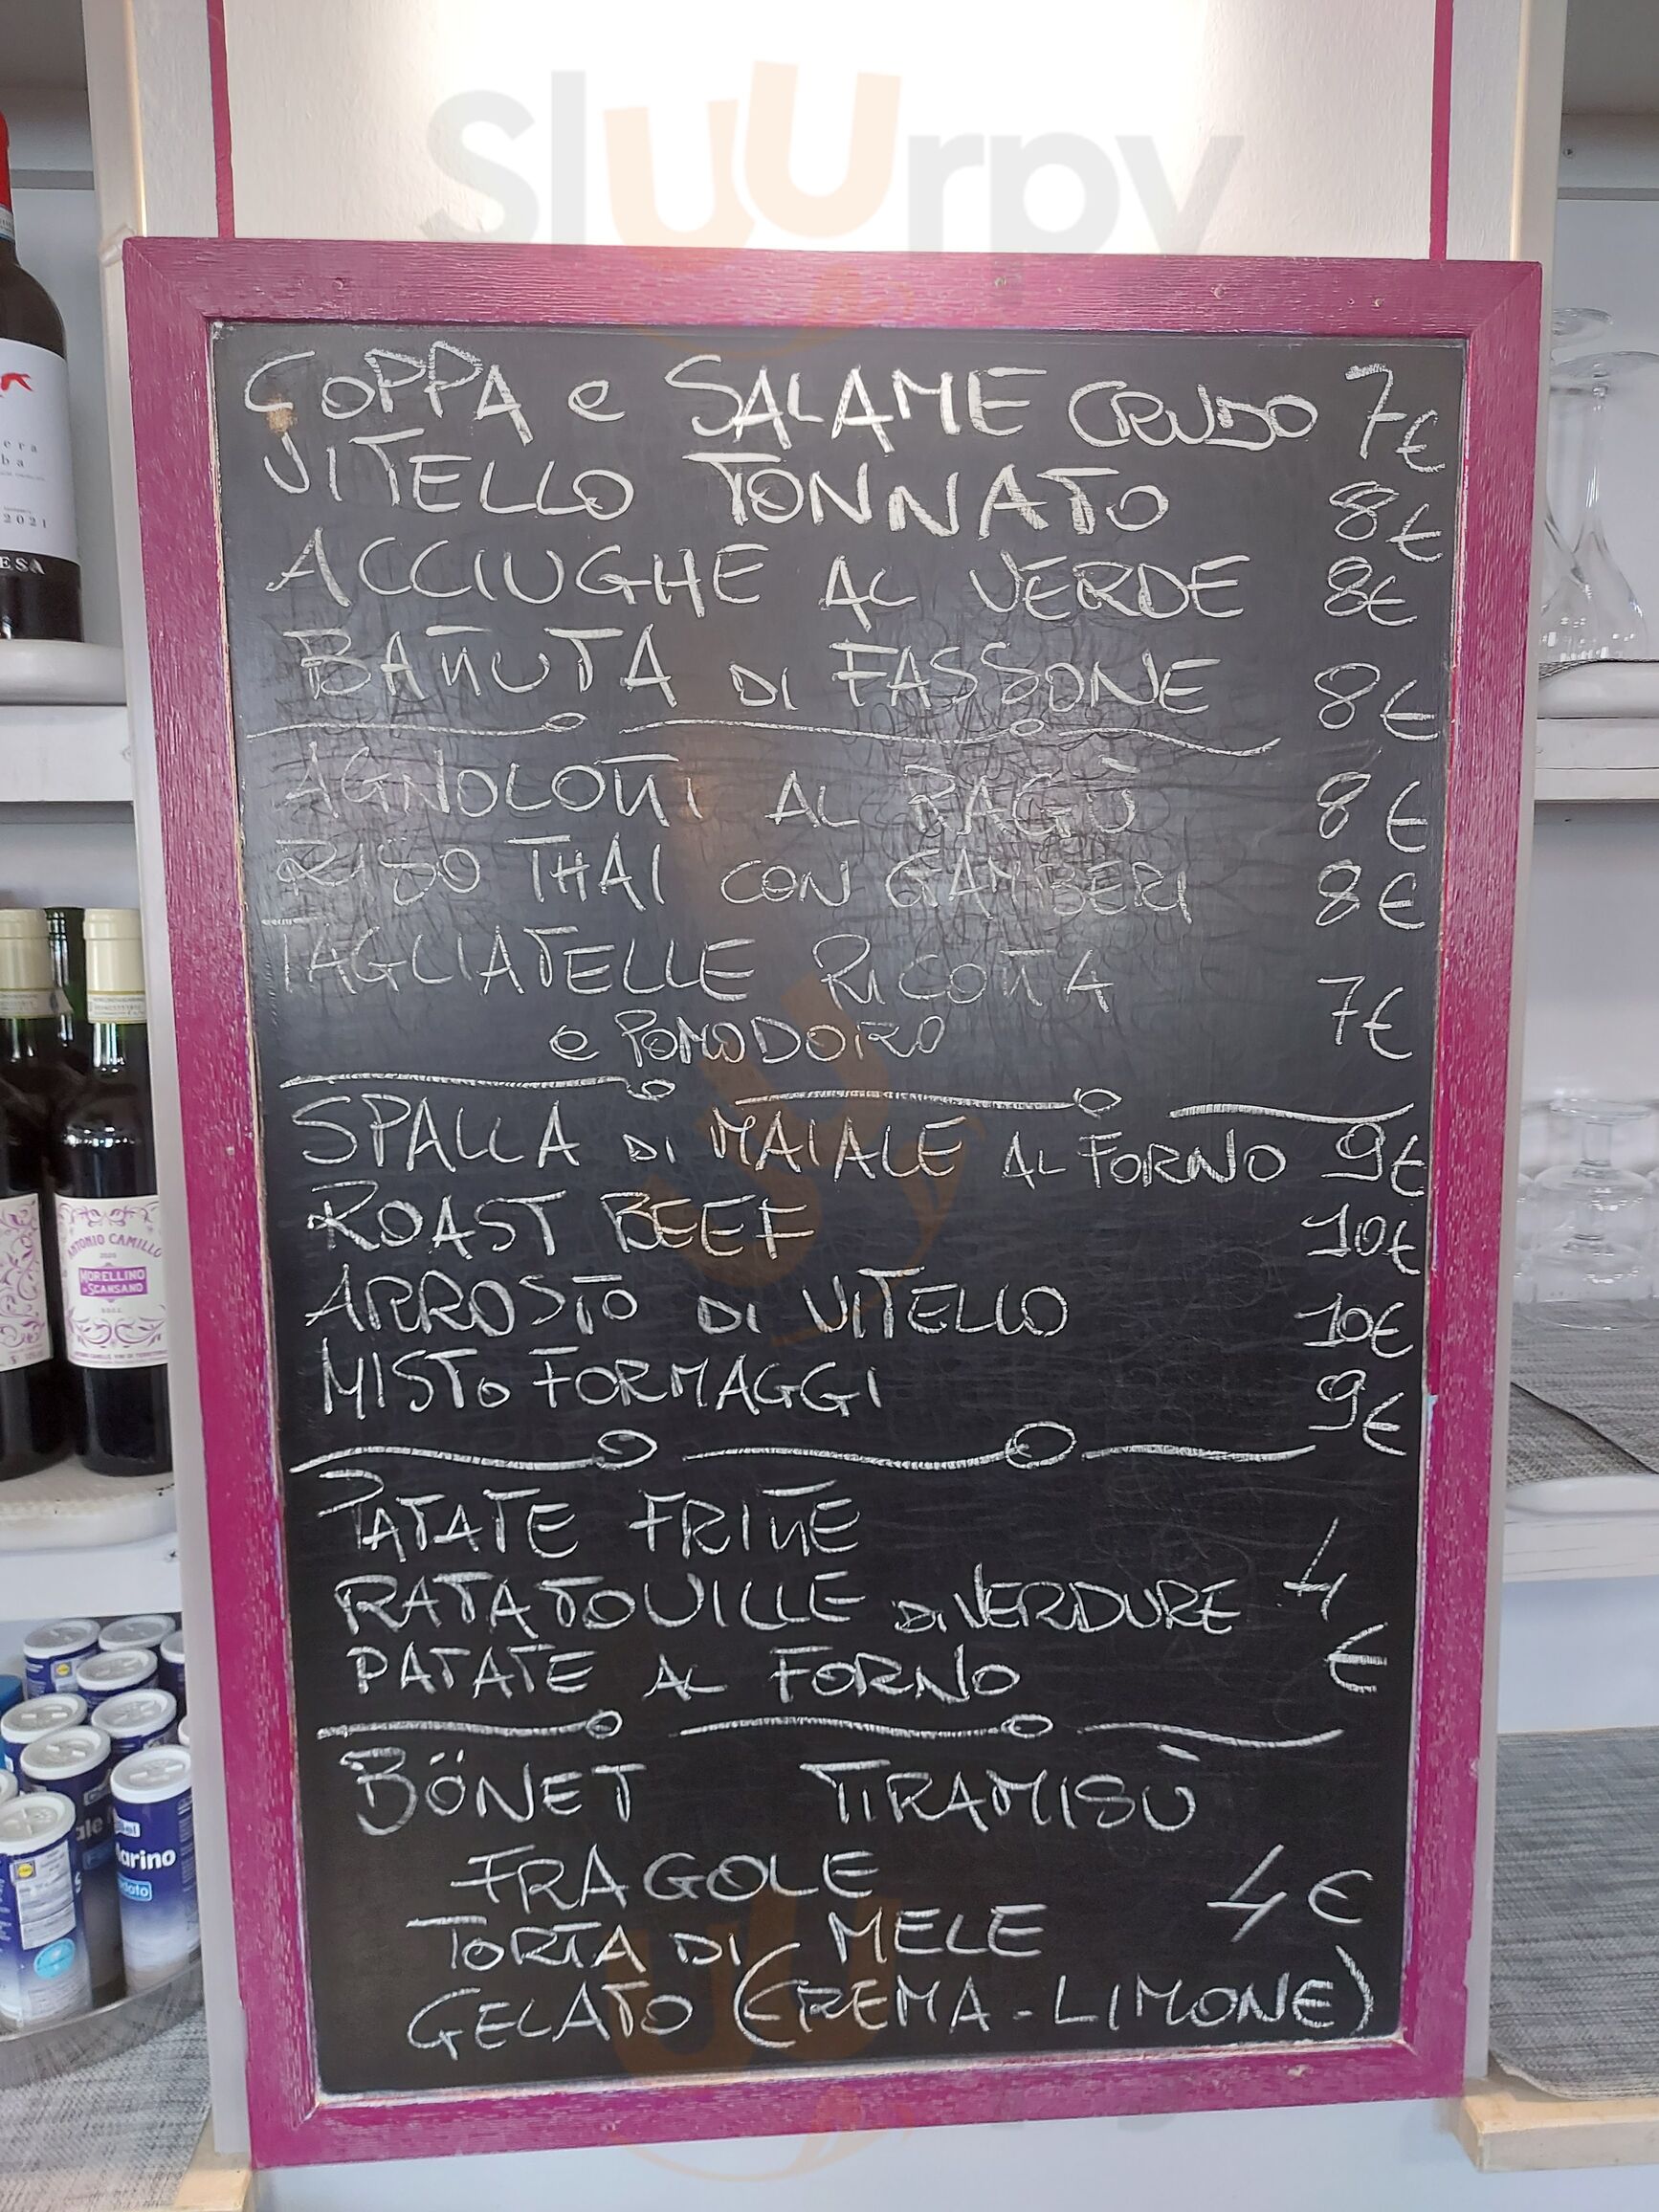 Sluurpy
COPPA e SALAME CRUDO 7€
VITELLO TONNATO 8€
ACCIUGHE AL VERDE 8€
BATTUTA DI FASSONE 8€
AGNOLOTTI AL RAGÙ 8€
RISO THAI CON GAMBERI 8€
TAGLIATELLE RICOTTA
e POMODORO 7€
SPALLA DI MAIALE AL FORNO 9€
ROAST BEEF 10€
ARROSTO DI VITELLO 10€
MISTO FORMAGGI 9€
PATATE FRITTE
RATATOUILLE DI VERDURE 4
PATATE AL FORNO €
BÖNET TIRAMISÙ
FRAGOLE 4€
TORTA DI MELE
GELATO (CREMA - LIMONE)
2021
ANTONIO CAMILLO
2020
MORELLINO
DI SCANSANO
D.O.C.G.